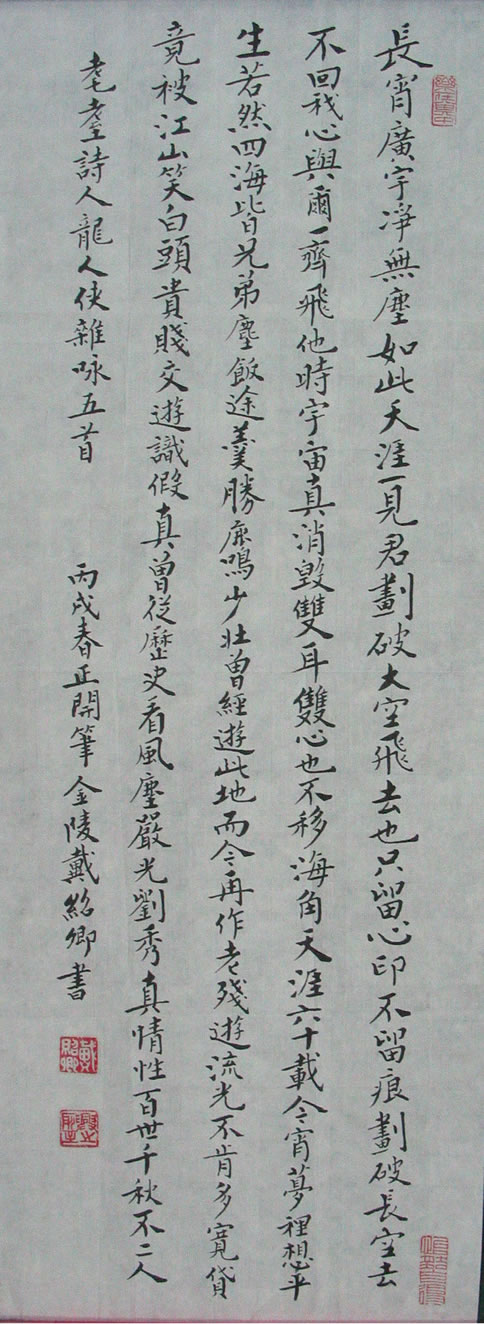 長宵廣宇凈無塵如此天涯一見君劃破太空飛去也只留心印不留痕劃破長空去
不回我心與爾一齊飛他時宇宙真消毀雙耳雙心也不移海角天涯六十載今宵夢裡想平
生若然四海皆兄弟塵飯途羹勝鹿鳴少壯曾經遊此地而今再作老殘遊流光不肯多寬貸
竟被江山笑白頭貴賤交遊識假真曾從歷史看風塵嚴光劉秀真情性百世千秋不二人
耄耋詩人龍人俠雜咏五首
丙戌春正開筆金陵戴紹卿書